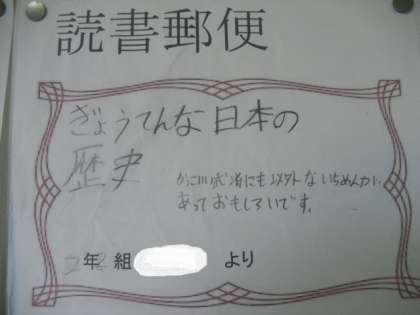 読書郵便
ぎょうてんな日本の
歴史
かっこいい武将にもコメクトないちめんが
あっておもしろいです。
2年2組 より